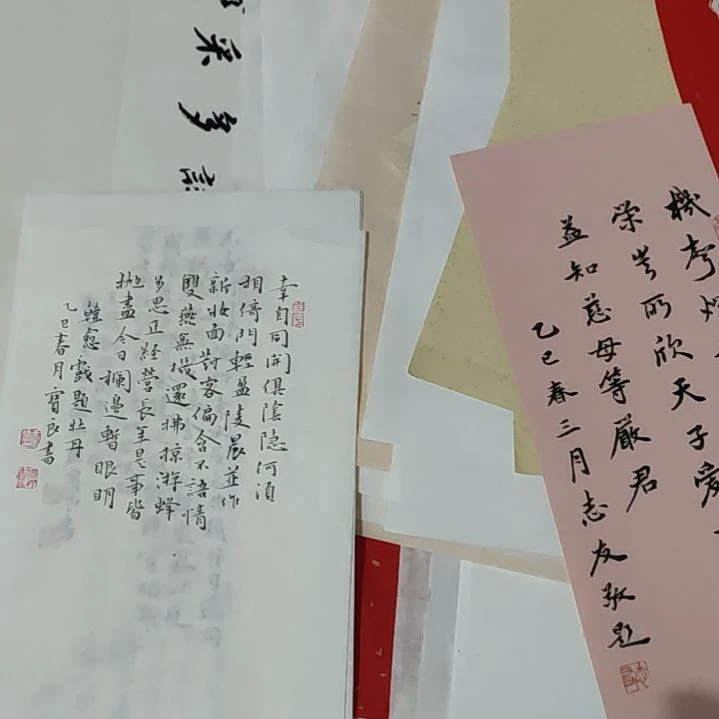 機杼
榮豈所欣天子愛
益知慈母等嚴君
乙巳春三月志友敬題
采多
幸自同開俱陰隐何須
相倚門輕盈陵晨並作
新妝面對客偏含不語情
雙燕無機還拂掠游蜂
多思正經營長年是事皆
拋盡今日欄邊暫眼明
韓愈戲題牡丹
乙巳春月寶良書